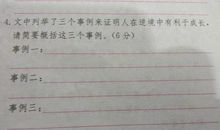 4. 文中列举了三个事例来证明人在逆境中有利于成长。
请简要概括这三个事例。(6分)
事例一:
事例二:
事例三: